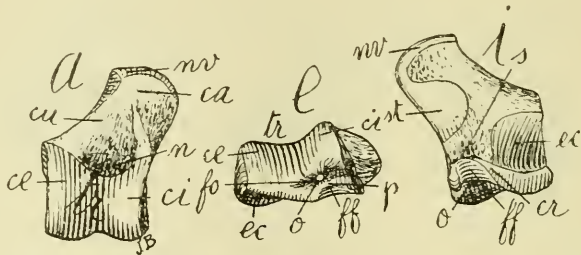 a
nv
ca
cu
n
ce
ci
JB
e
tr
ce
fo
o
ec
ff
p
i
nv
s
cist
ec
o
ff
cr